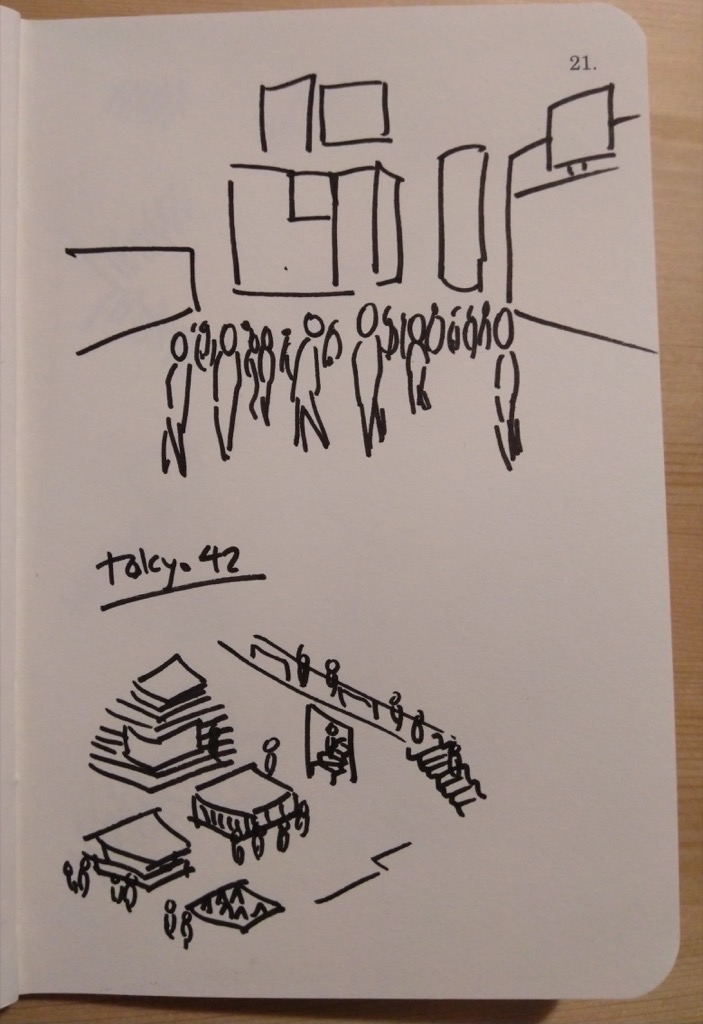 21.
tokyo 42